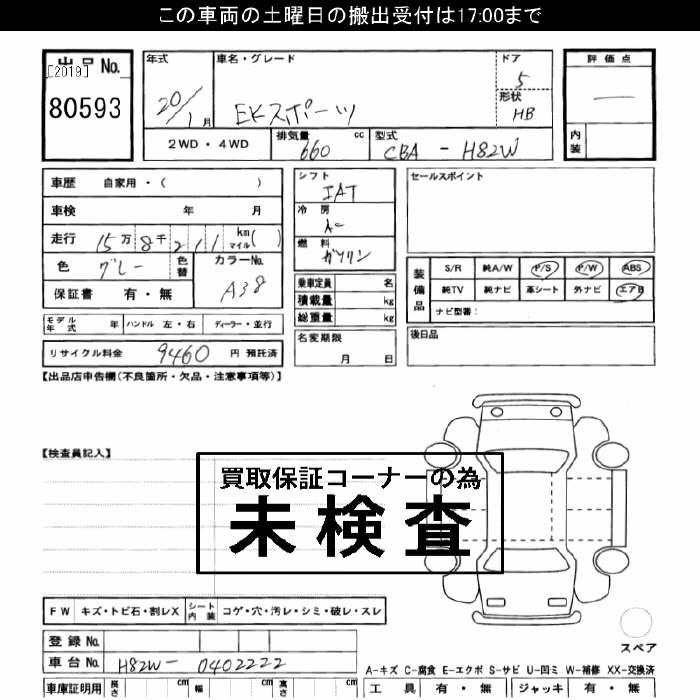 この車両の土曜日の搬出受付は17:00まで
出品No.
[2019]
80593
年式
20/1月
車名・グレード
EKスポーツ
ドア
5
形状
HB
評価点
内装
2WD・4WD
排気量
660 cc
型式
CBA - H82W
車歴 自家用・( )
車検 年 月
走行 15万8千211 km マイル( )
色 グレー 色替
カラーNo. A38
保証書 有・無
シフト
IAT
冷房
燃料
ガソリン
乗車定員 名
積載量 kg
総重量 kg
セールスポイント
装備品
S/R 純A/W P/S P/W ABS
純TV 純ナビ 革シート 外ナビ エアB
ナビ型番:
モデル年式 年 ハンドル 左・右 ディーラー・並行
リサイクル料金 9460 円 預託済
名変期限
月 日
後日品
【出品店申告欄(不良箇所・欠品・注意事項等)】
【検査員記入】
買取保証コーナーの為
未検査
FW キズ・トビ石・割レX シート内装 コゲ・穴・汚レ・シミ・破レ・スレ
スペア
登録No.
車台No. H82W- 0402222
A-キズ C-腐食 E-エクボ S-サビ U-凹ミ W-補修 XX-交換済
車庫証明用 長さ cm 幅 cm 高さ cm
工具 有・無 ジャッキ 有・無